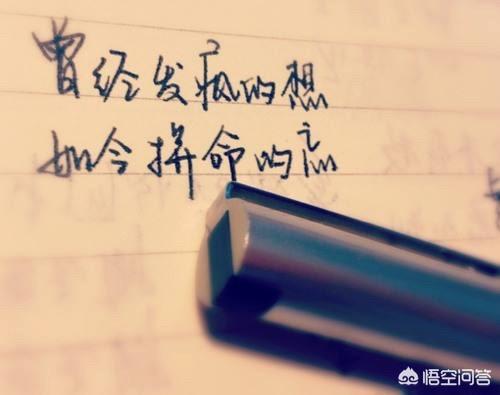 曾经发疯的想
如今拼命的忘
悟空问答